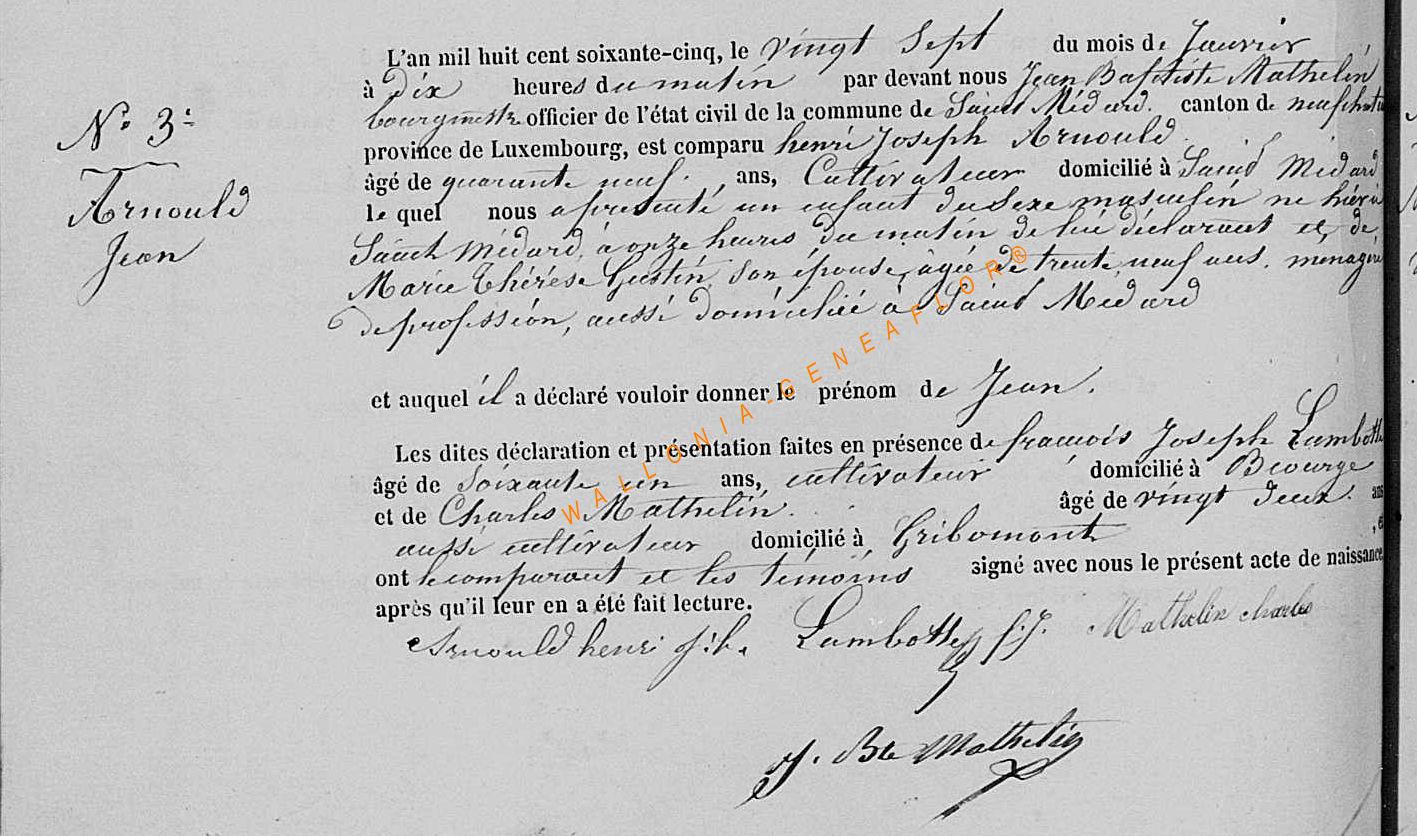 N° 3.
Arnould
Jean
L'an mil huit cent soixante-cinq, le vingt sept du mois de Janvier
à dix heures du matin par devant nous Jean Baptiste Mathelin
bourgmestre officier de l'état civil de la commune de Saint Médard. canton de neufchat
province de Luxembourg, est comparu henri Joseph Arnould
âgé de quarante neuf. ans, Cultivateur domicilié à Saint Médard
le quel nous a presenté un enfant du Sexe masculin né hier à
Saint Médard, à onze heures du matin de lui déclarant et, de
Marie Thérèse Gustin, Son épouse, âgée de trente neuf ans. menagère
de profession, aussi domiciliée à Saint Médard
et auquel il a déclaré vouloir donner le prénom de Jean.
Les dites déclaration et présentation faites en présence de françois Joseph Lambotte
âgé de Soixante un ans, cultivateur domicilié à Biourge
et de Charles Mathelin. âgé de vingt deux. ans
aussi cultivateur domicilié à Gribomont
ont le comparant et les témoins signé avec nous le présent acte de naissance
après qu'il leur en a été fait lecture.
Arnould henri Lambotte f.J. Mathelin charles
J. Bte Mathelin
WALLONIA-GENEAFLOR®